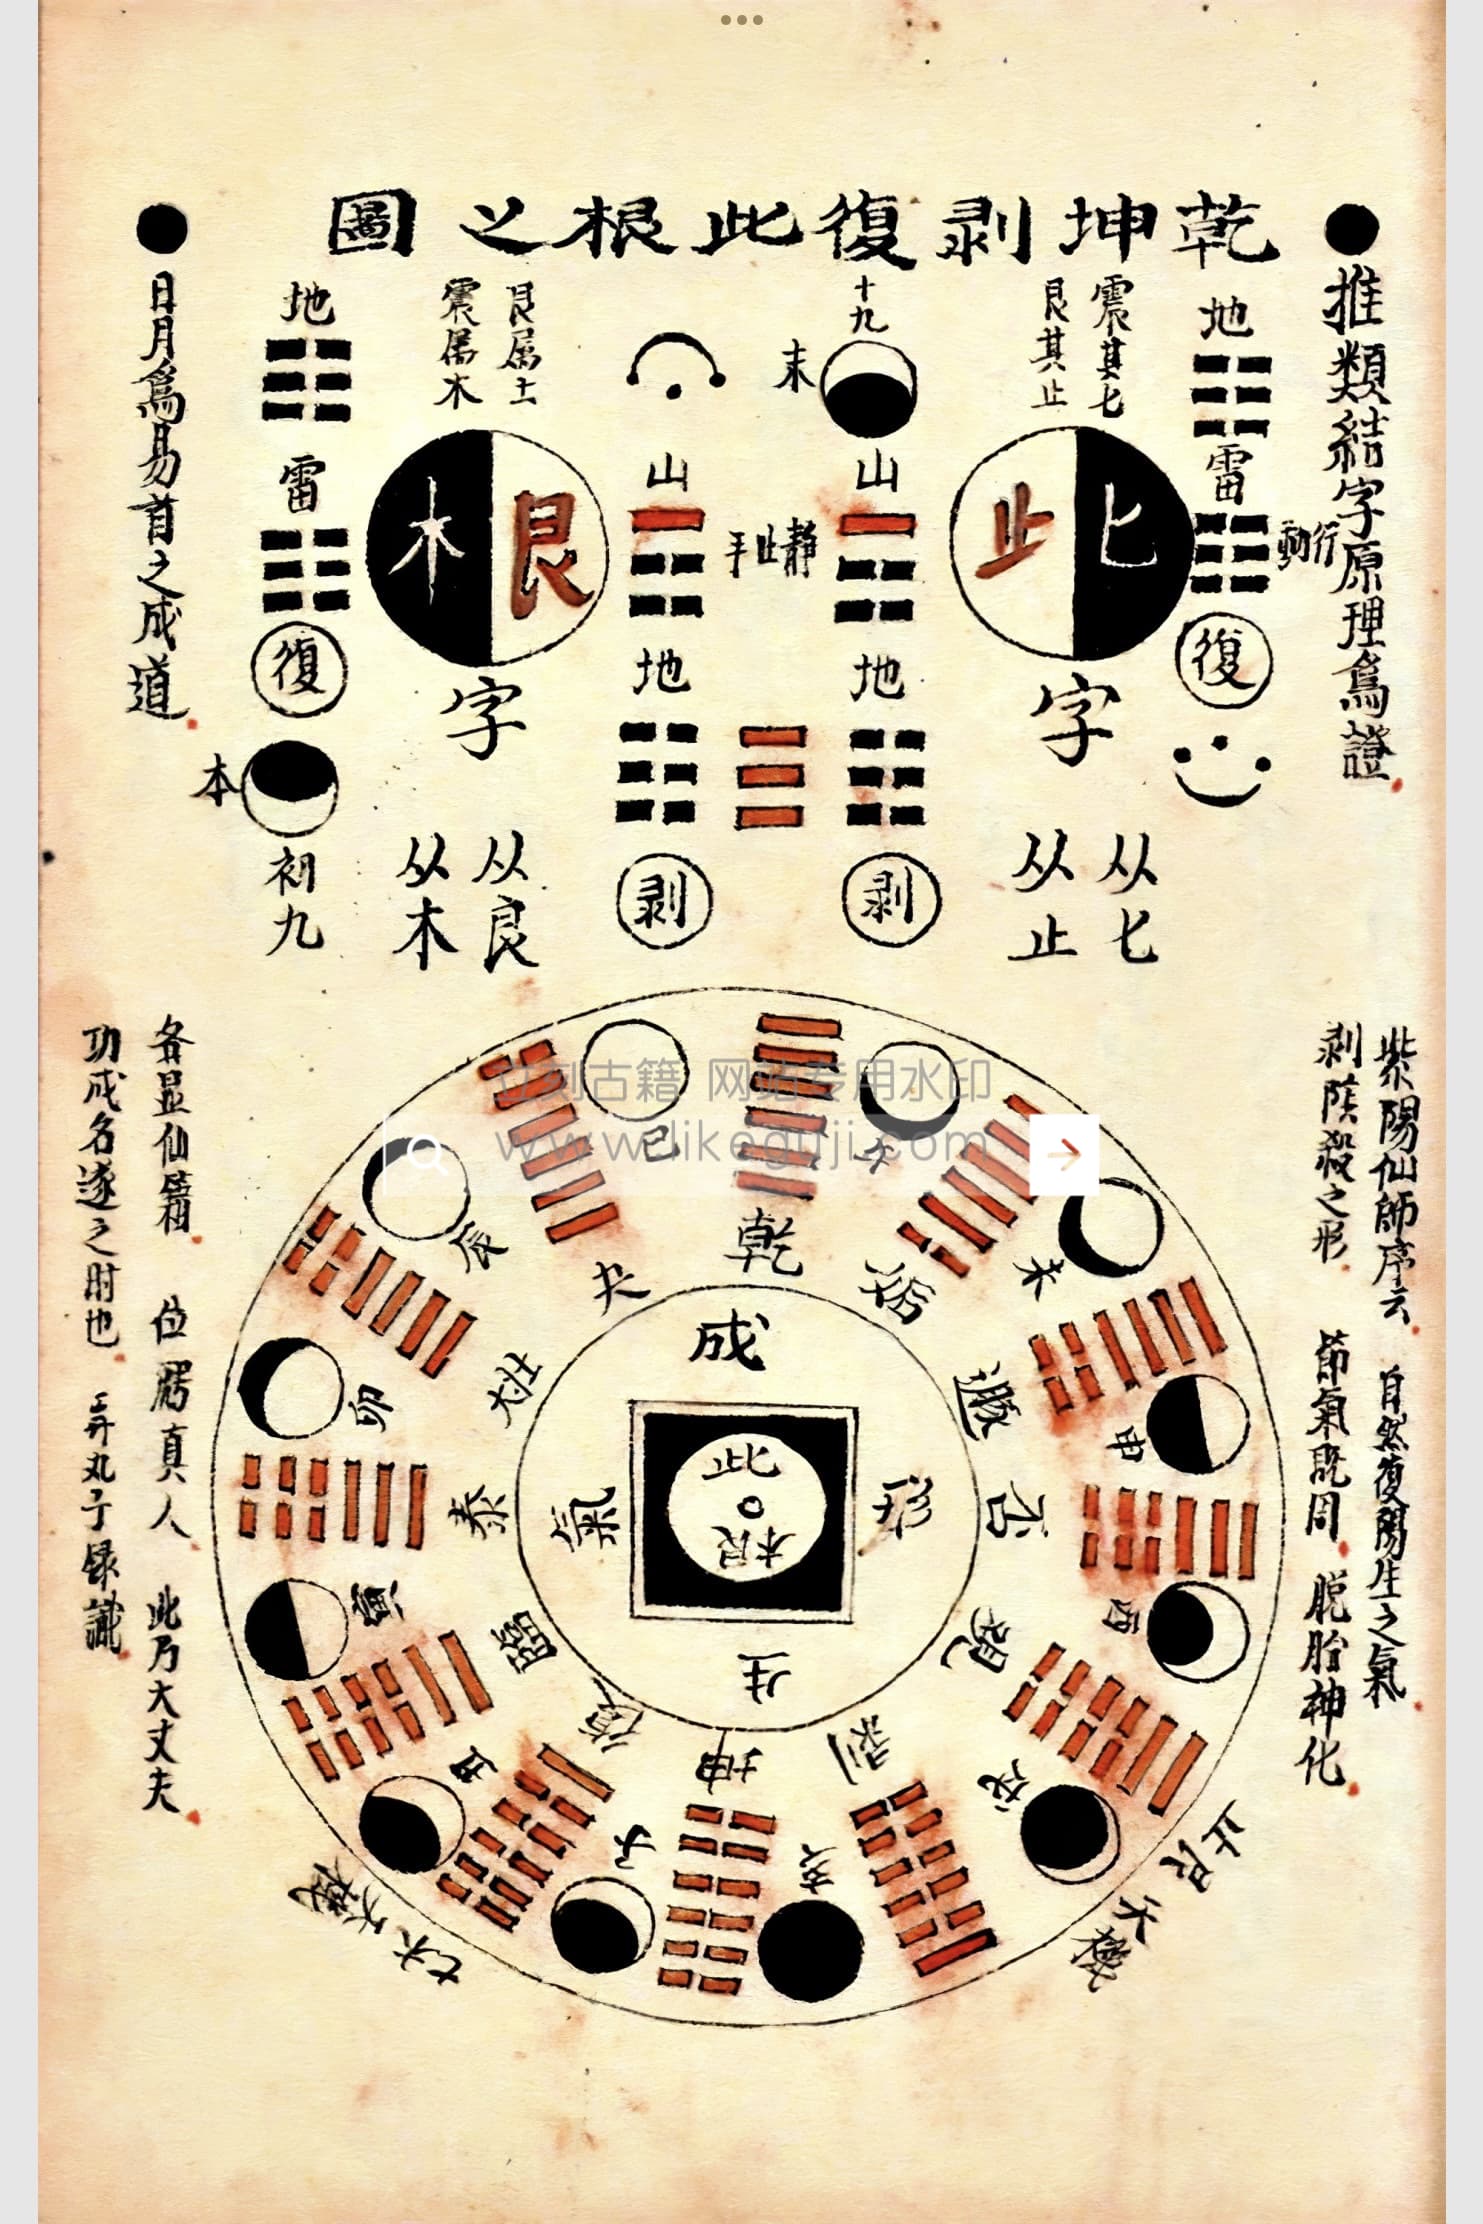 乾坤剥復此根之圖
●推類結字原理爲證
地
雷
行動
復
震其七
艮其止
止匕
字
从七
从止
十九
末
山
地
剥
靜止手
山
地
剥
艮属土
震属木
木艮
字
从艮
从木
地
雷
復
本
初九
●日月爲易首之成道
紫陽仙師序云 自然復陽生之氣
剥陰殺之形 節氣既周 脱胎神化
各显仙籍 位爵真人 此乃大丈夫
功成名遂之时也 弄丸子録識
乾
姤
遯
否
觀
剥
坤
復
臨
泰
大壯
夬
午
未
申
酉
戌
亥
子
丑
寅
卯
辰
巳
成
形
生
氣
此
根
止艮
天機
七木
天機
立刻古籍 网站专用水印
www.likeguji.com